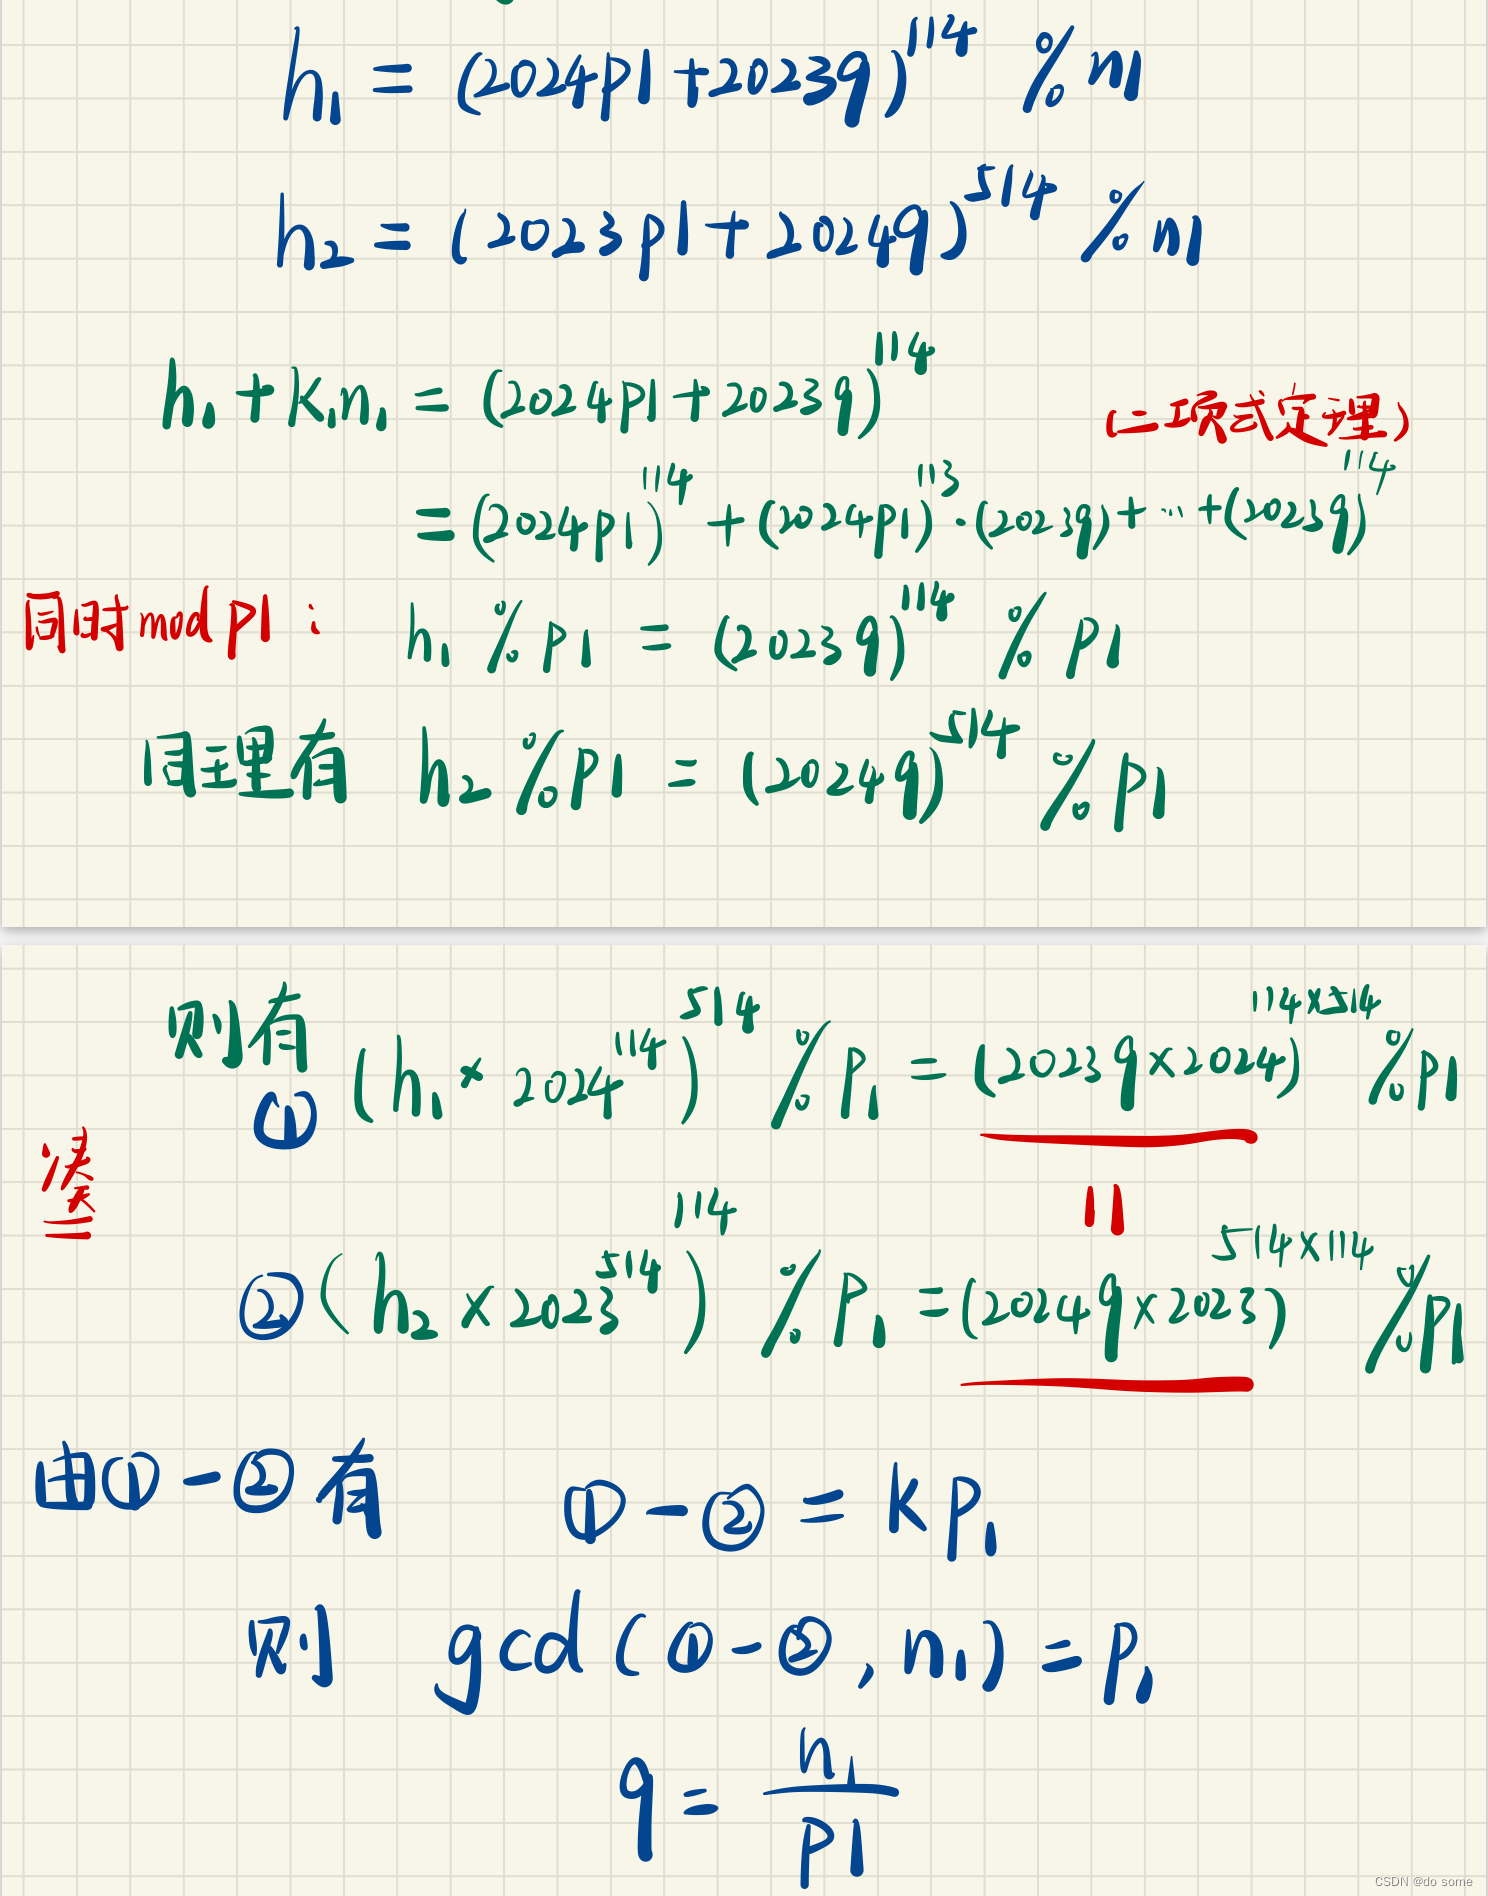 h₁ = (2024p1+2023q)^114 % n1
h₂ = (2023p1+2024q)^514 % n1
h₁+k₁n₁ = (2024p1+2023q)^114
(二项式定理)
= (2024p1)^114 + (2024p1)^113·(2023q)+…+(2023q)^114
同时mod p1: h₁ % p1 = (2023q)^114 % p1
同理有 h₂ % p1 = (2024q)^514 % p1
则有 ① (h₁×2024^114)^514 % p₁ = (2023q×2024)^114×514 % p1
凑
=
② (h₂×2023^514)^114 % p₁ = (2024q×2023)^514×114 % p1
由①-②有 ①-② = kp₁
则 gcd(①-②, n₁) = p₁
q = n₁/p1
CSDN @do some